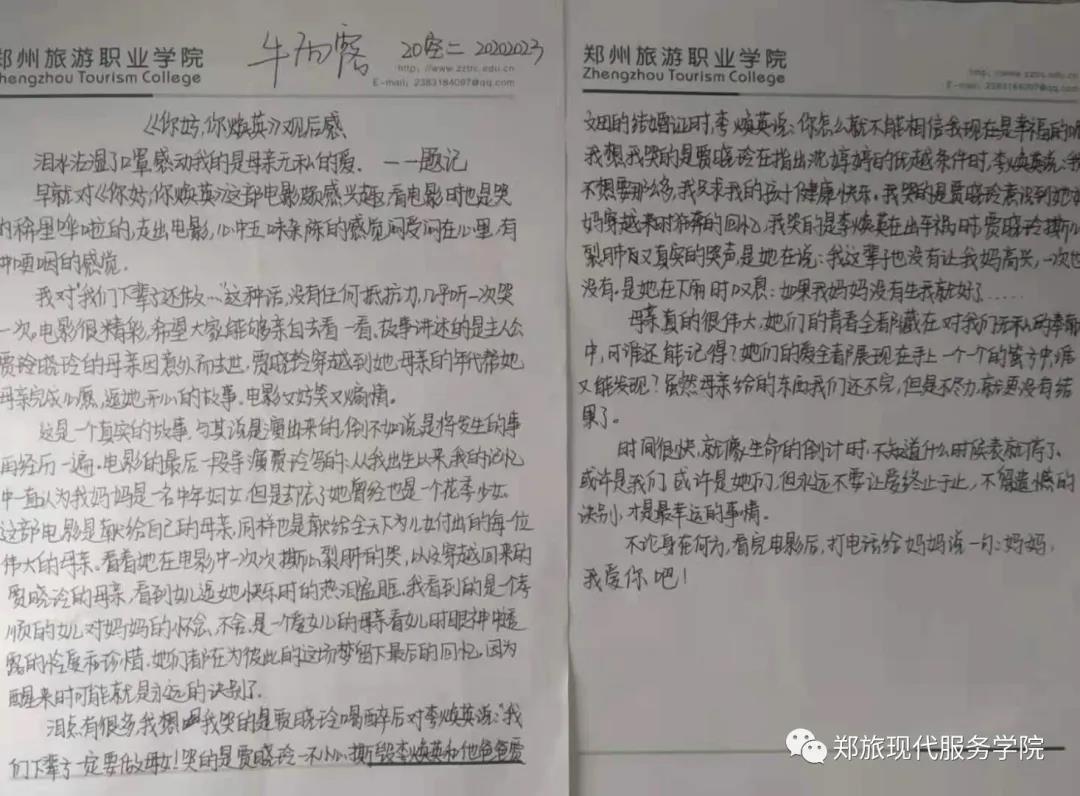 郑州旅游职业学院
Zhengzhou Tourism College
牛雨露 20空二 20202023
http://www.zztrc.edu.cn
E-mail: 2383184097@qq.com
《你好,你焕英》观后感
泪水沾湿了口罩感动我的是母亲无私的爱. ——题记
早就对《你好,你焕英》这部电影颇感兴趣,看电影时也是哭
的稀里哗啦的,走出电影,心中五味杂陈的感觉闷爱闷在心里,有
种哽咽的感觉.
我对“我们下辈子还做…”这种话,没有任何抵抗力,几乎听一次哭
一次。电影很精彩,希望大家能够亲自去看一看。故事讲述的是主人公
贾晓玲的母亲因意外而去世,贾晓玲穿越到她母亲的年代帮她
母亲完成心愿,逗她开心的故事。电影又好笑又煽情。
这是一个真实的故事,与其说是演出来的,倒不如说是将发生的事
再经历一遍。电影的最后一段导演贾玲写的:从我出生以来,我的记忆
中一直认为我妈妈是一名中年妇女,但是却忘了她曾经也是一个花季少女。
这部电影是献给自己的母亲,同样也是献给全天下为儿女付出的每一位
伟大的母亲。看看她在电影中一次次撕心裂肺的哭,以及穿越回来的
贾晓玲的母亲,看到女儿逗她快乐时的热泪盈眶。我看到的是一个孝
顺的女儿对妈妈的怀念,不舍,是一个爱女儿的母亲看女儿时眼神中透
露的怜爱和珍惜。她们都在为彼此的这场梦留下最后的回忆,因为
醒来时可能就是永远的诀别了.
泪点有很多,我想我哭的是贾晓玲喝醉后对李焕英说:“我
们下辈子一定要做母女!哭的是贾晓玲一不小心撕毁李焕英和他爸爸贾
郑州旅游职业学院
Zhengzhou Tourism College
http://www.zztrc.edu.cn
E-mail: 2383184097@qq.com
文田的结婚证时,李焕英说:你怎么就不能相信我现在是幸福的呢
我想我哭的是贾晓玲在指出沈婷婷的优越条件时,李焕英说:我
不想要那么多,我只求我的孩子健康快乐。我哭的是贾晓玲意识到她妈
妈穿越来时狂奔的回忆,我哭的是李焕英在出车祸时,贾晓玲撕心
裂肺又真实的哭声,是她在说:我这辈子也没有让我妈高兴,一次也
没有.是她在下雨时叹息:如果我妈妈没有生我就好了……
母亲真的很伟大,她们的青春全都藏在对我们无私的奉献
中,可谁还能记得?她们的爱全都展现在手上一个个的茧子中,谁
又能发现?虽然母亲给的东西我们还不完,但是不尽力,就更没有结
果了。
时间很快,就像生命的倒计时,不知道什么时候表就停了,
或许是我们,或许是她们,但永远不要让爱终止于止,不留遗憾的
诀别,才是最幸运的事情。
不论身在何方,看完电影后,打电话给妈妈说一句:妈妈,
我爱你吧!
郑旅现代服务学院